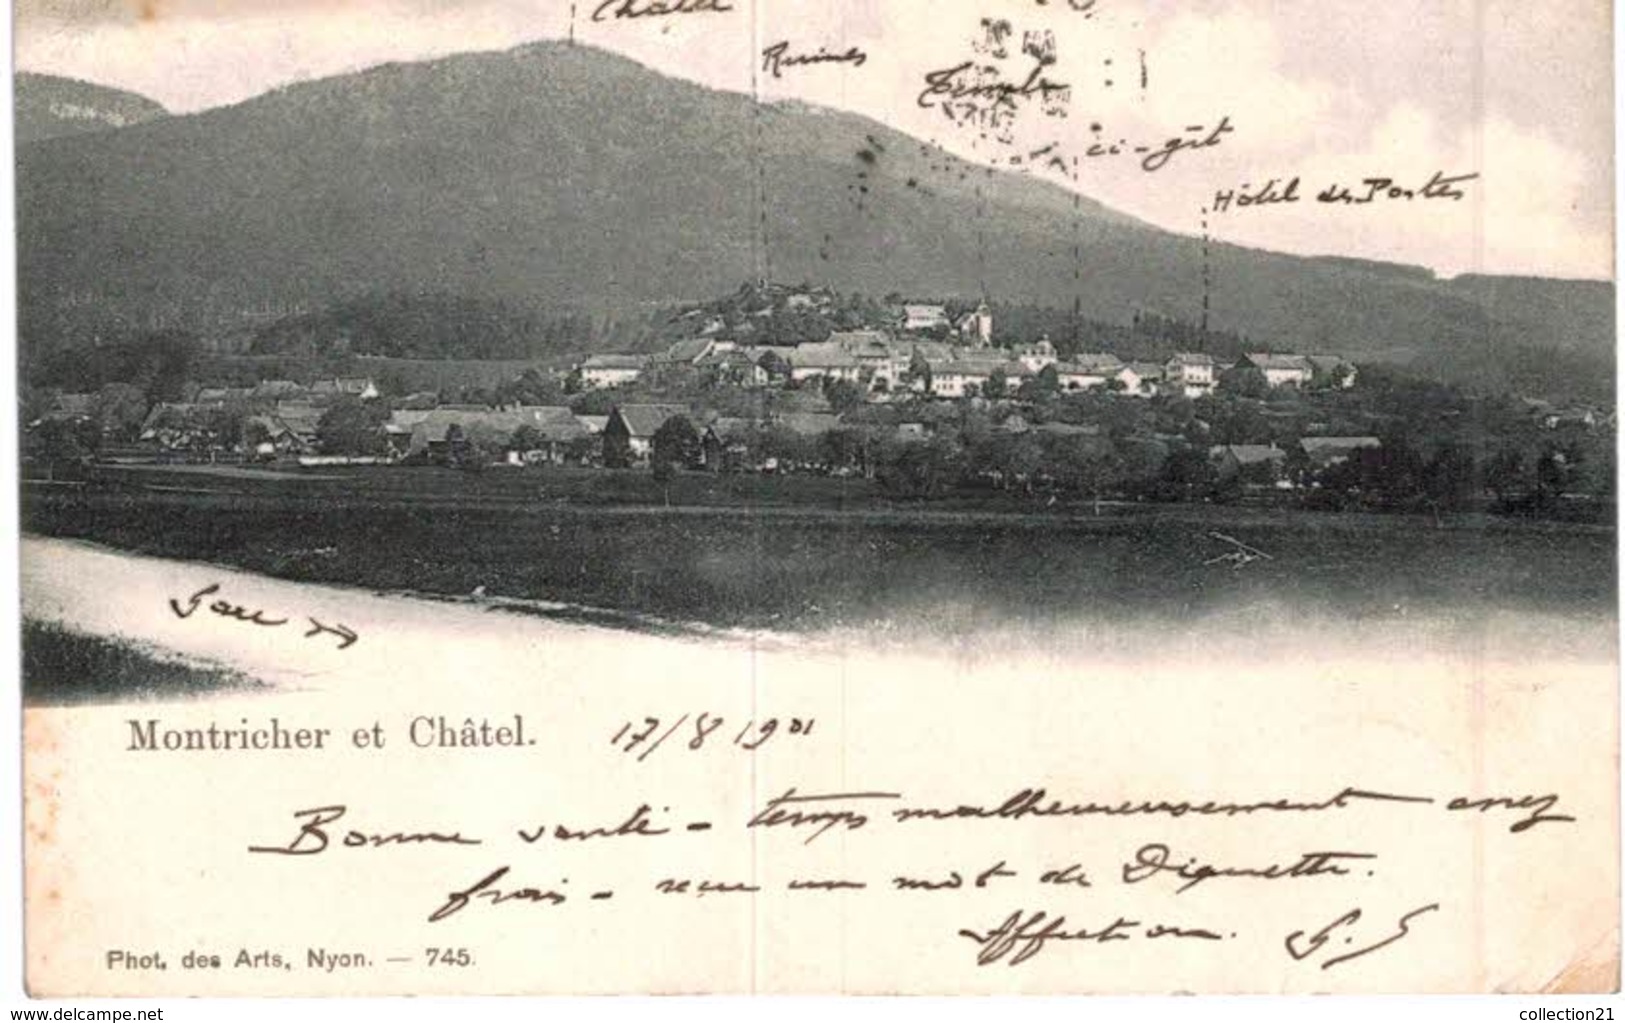 Châtel
Ruines
Temple
ci-gît
Hôtel des Postes
Gare
Montricher et Châtel. 17/8 1901
Bonne santé - temps malheureusement assez
frais - reçu un mot de Diquette.
Affection. G. S
Phot. des Arts, Nyon. — 745.
www.delcampe.net
collection21